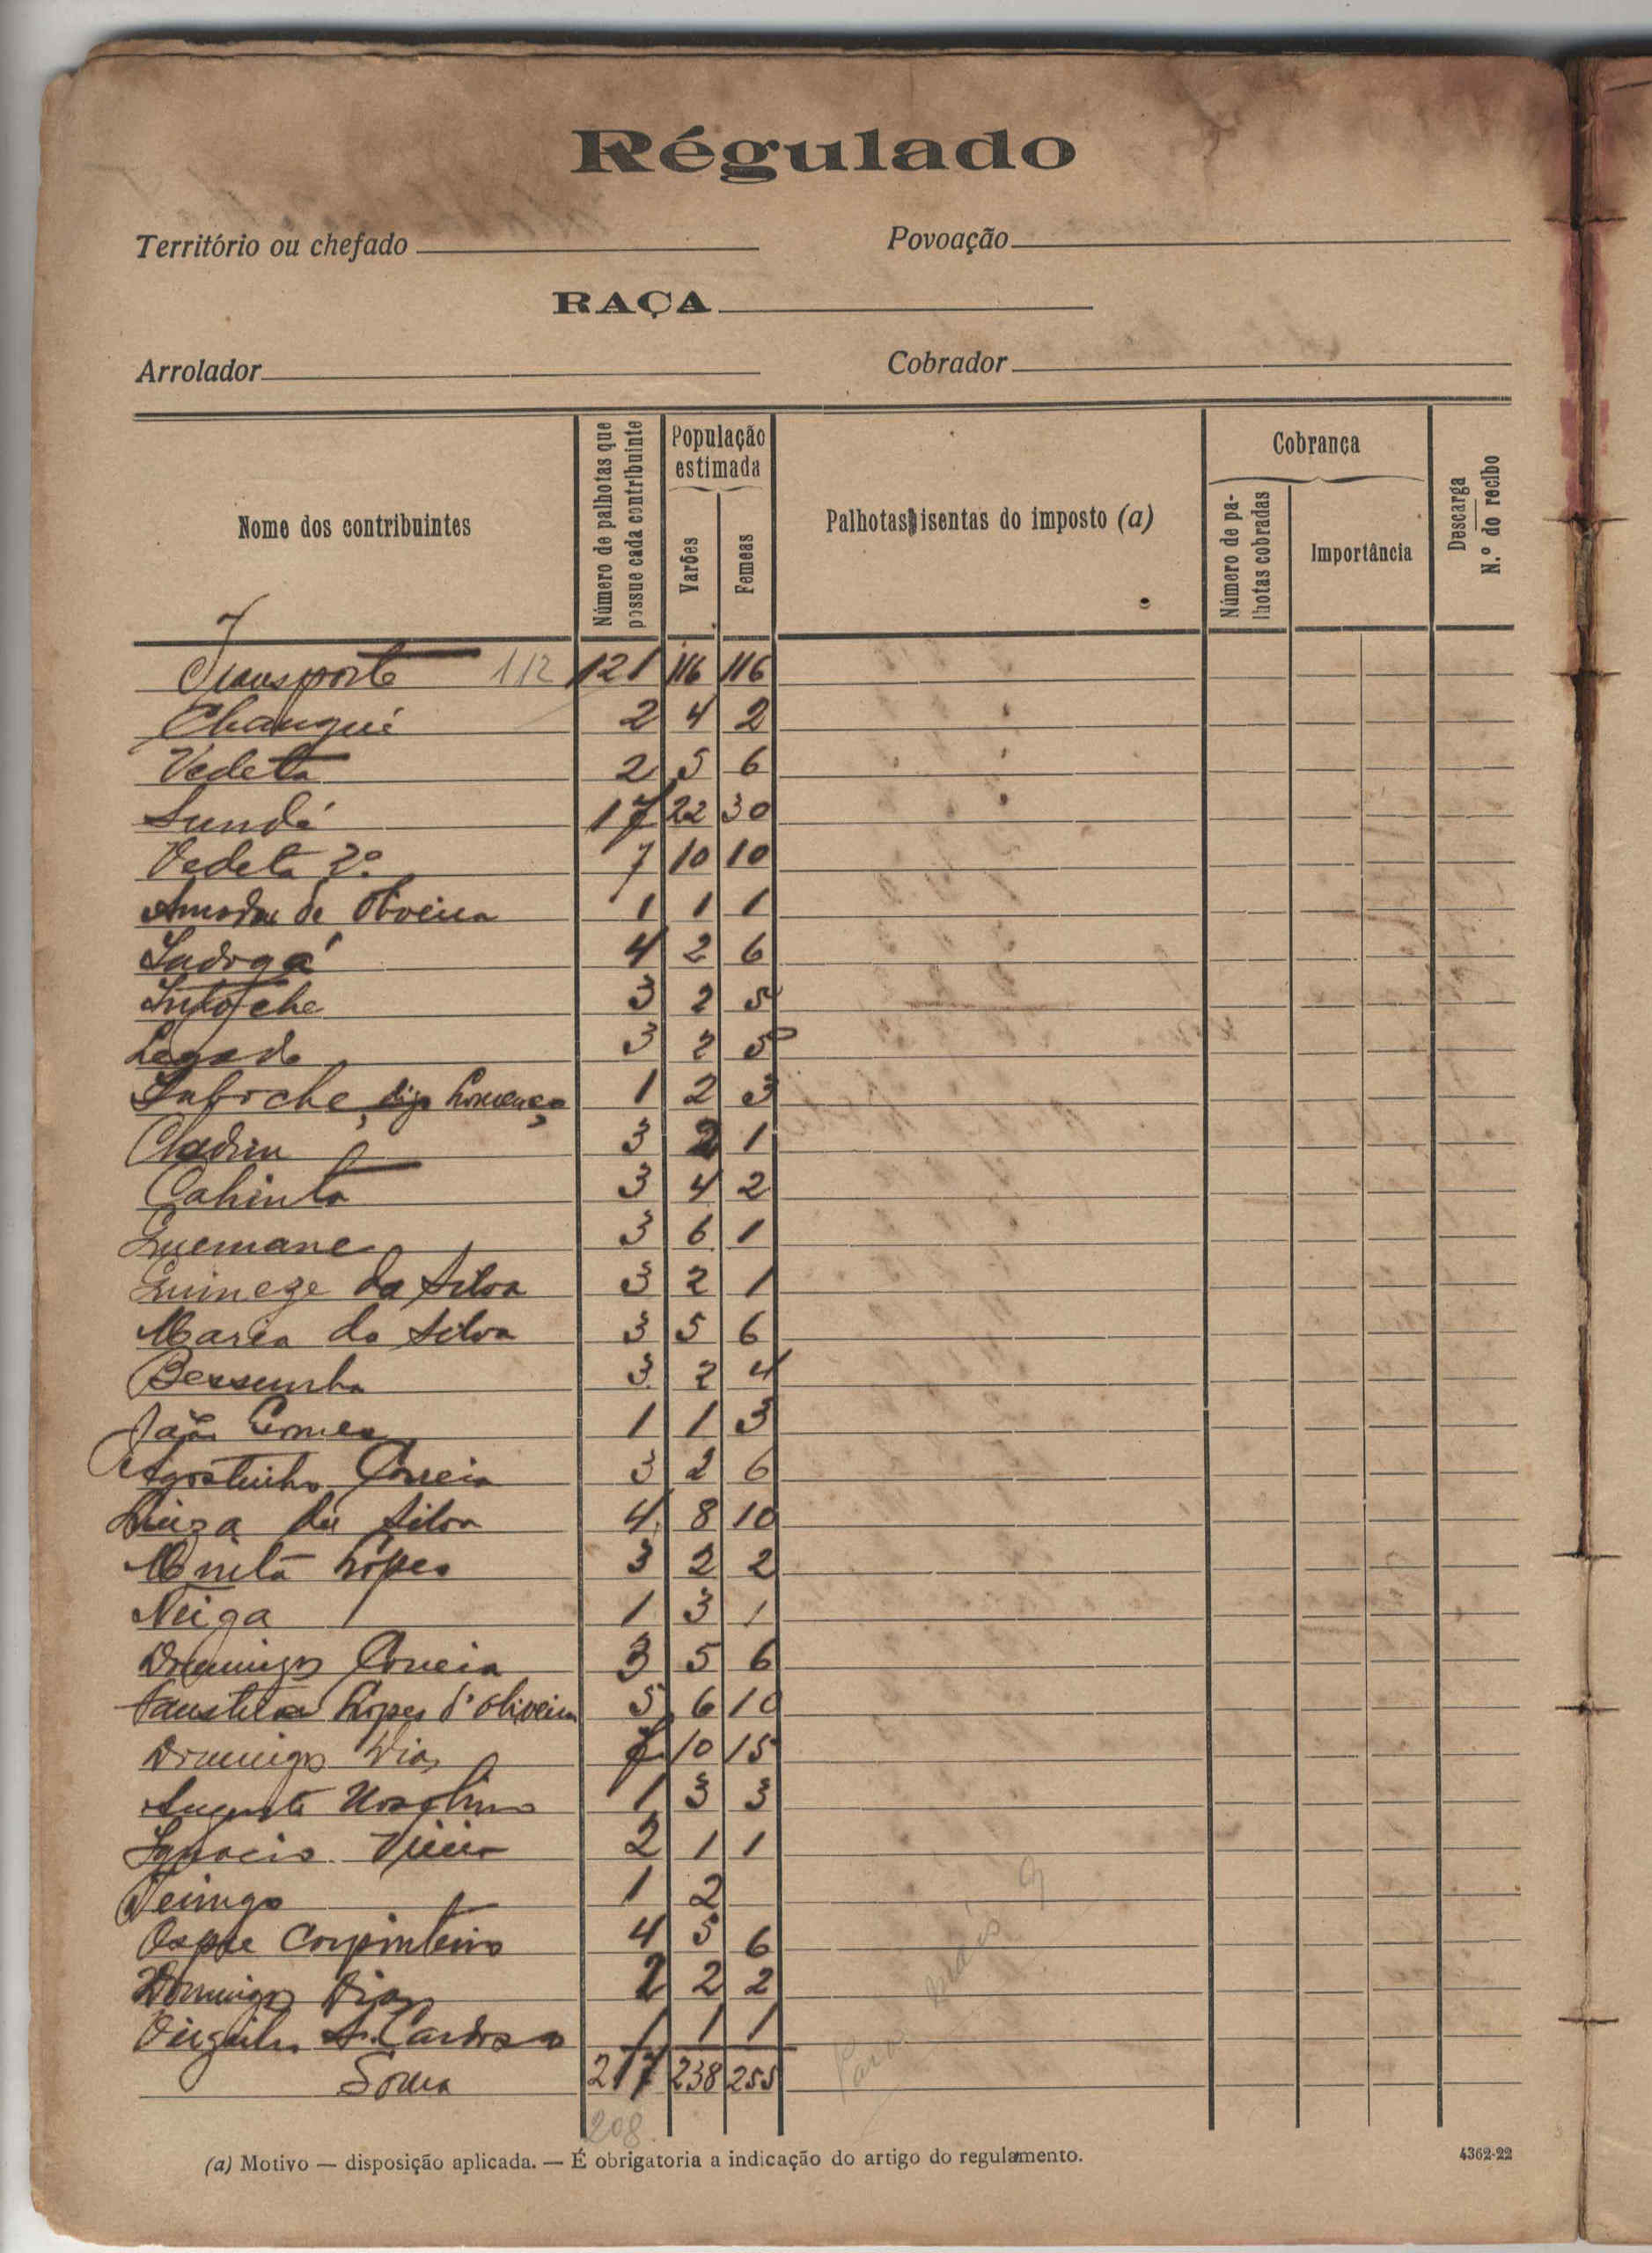 Régulado
Território ou chefado
Povoação
RAÇA
Arrolador
Cobrador
Nome dos contribuintes
Número de palhotas que possue cada contribuinte
População estimada
Varões
Femeas
Palhotas isentas do imposto (a)
Cobrança
Número de palhotas cobradas
Importância
Descarga
N.º do recibo
Transporte 112 121 116 116
Changué 2 4 2
Vedeta 2 5 6
Sundá 17 22 30
Vedeta 2º 7 10 10
Amador de Oliveira 1 1 1
4 2 6
3 2 5
3 2 5
digo Lourenço 1 2 3
3 2 1
Cahinta 3 4 2
Guemane 3 6 1
da Silva 3 2 1
Maria da Silva 3 5 6
3 2 4
João Gomes 1 1 3
Agostinho Correia 3 2 6
Luiza da Silva 4 8 10
Lopes 3 2 2
Neiga 1 3 1
Domingos Correia 3 5 6
Lopes d'Oliveira 5 6 10
Domingos Dias 7 10 15
Augusto 1 3 3
Ignacio Vieira 2 1 1
1 2
Carpinteiro 4 5 6
Domingos Dias 2 2 2
Virgilio A. Cardoso 1 1 1
Soma 217 238 255
208
Para mais 9
(a) Motivo — disposição aplicada. — É obrigatoria a indicação do artigo do regulamento.
4362-22